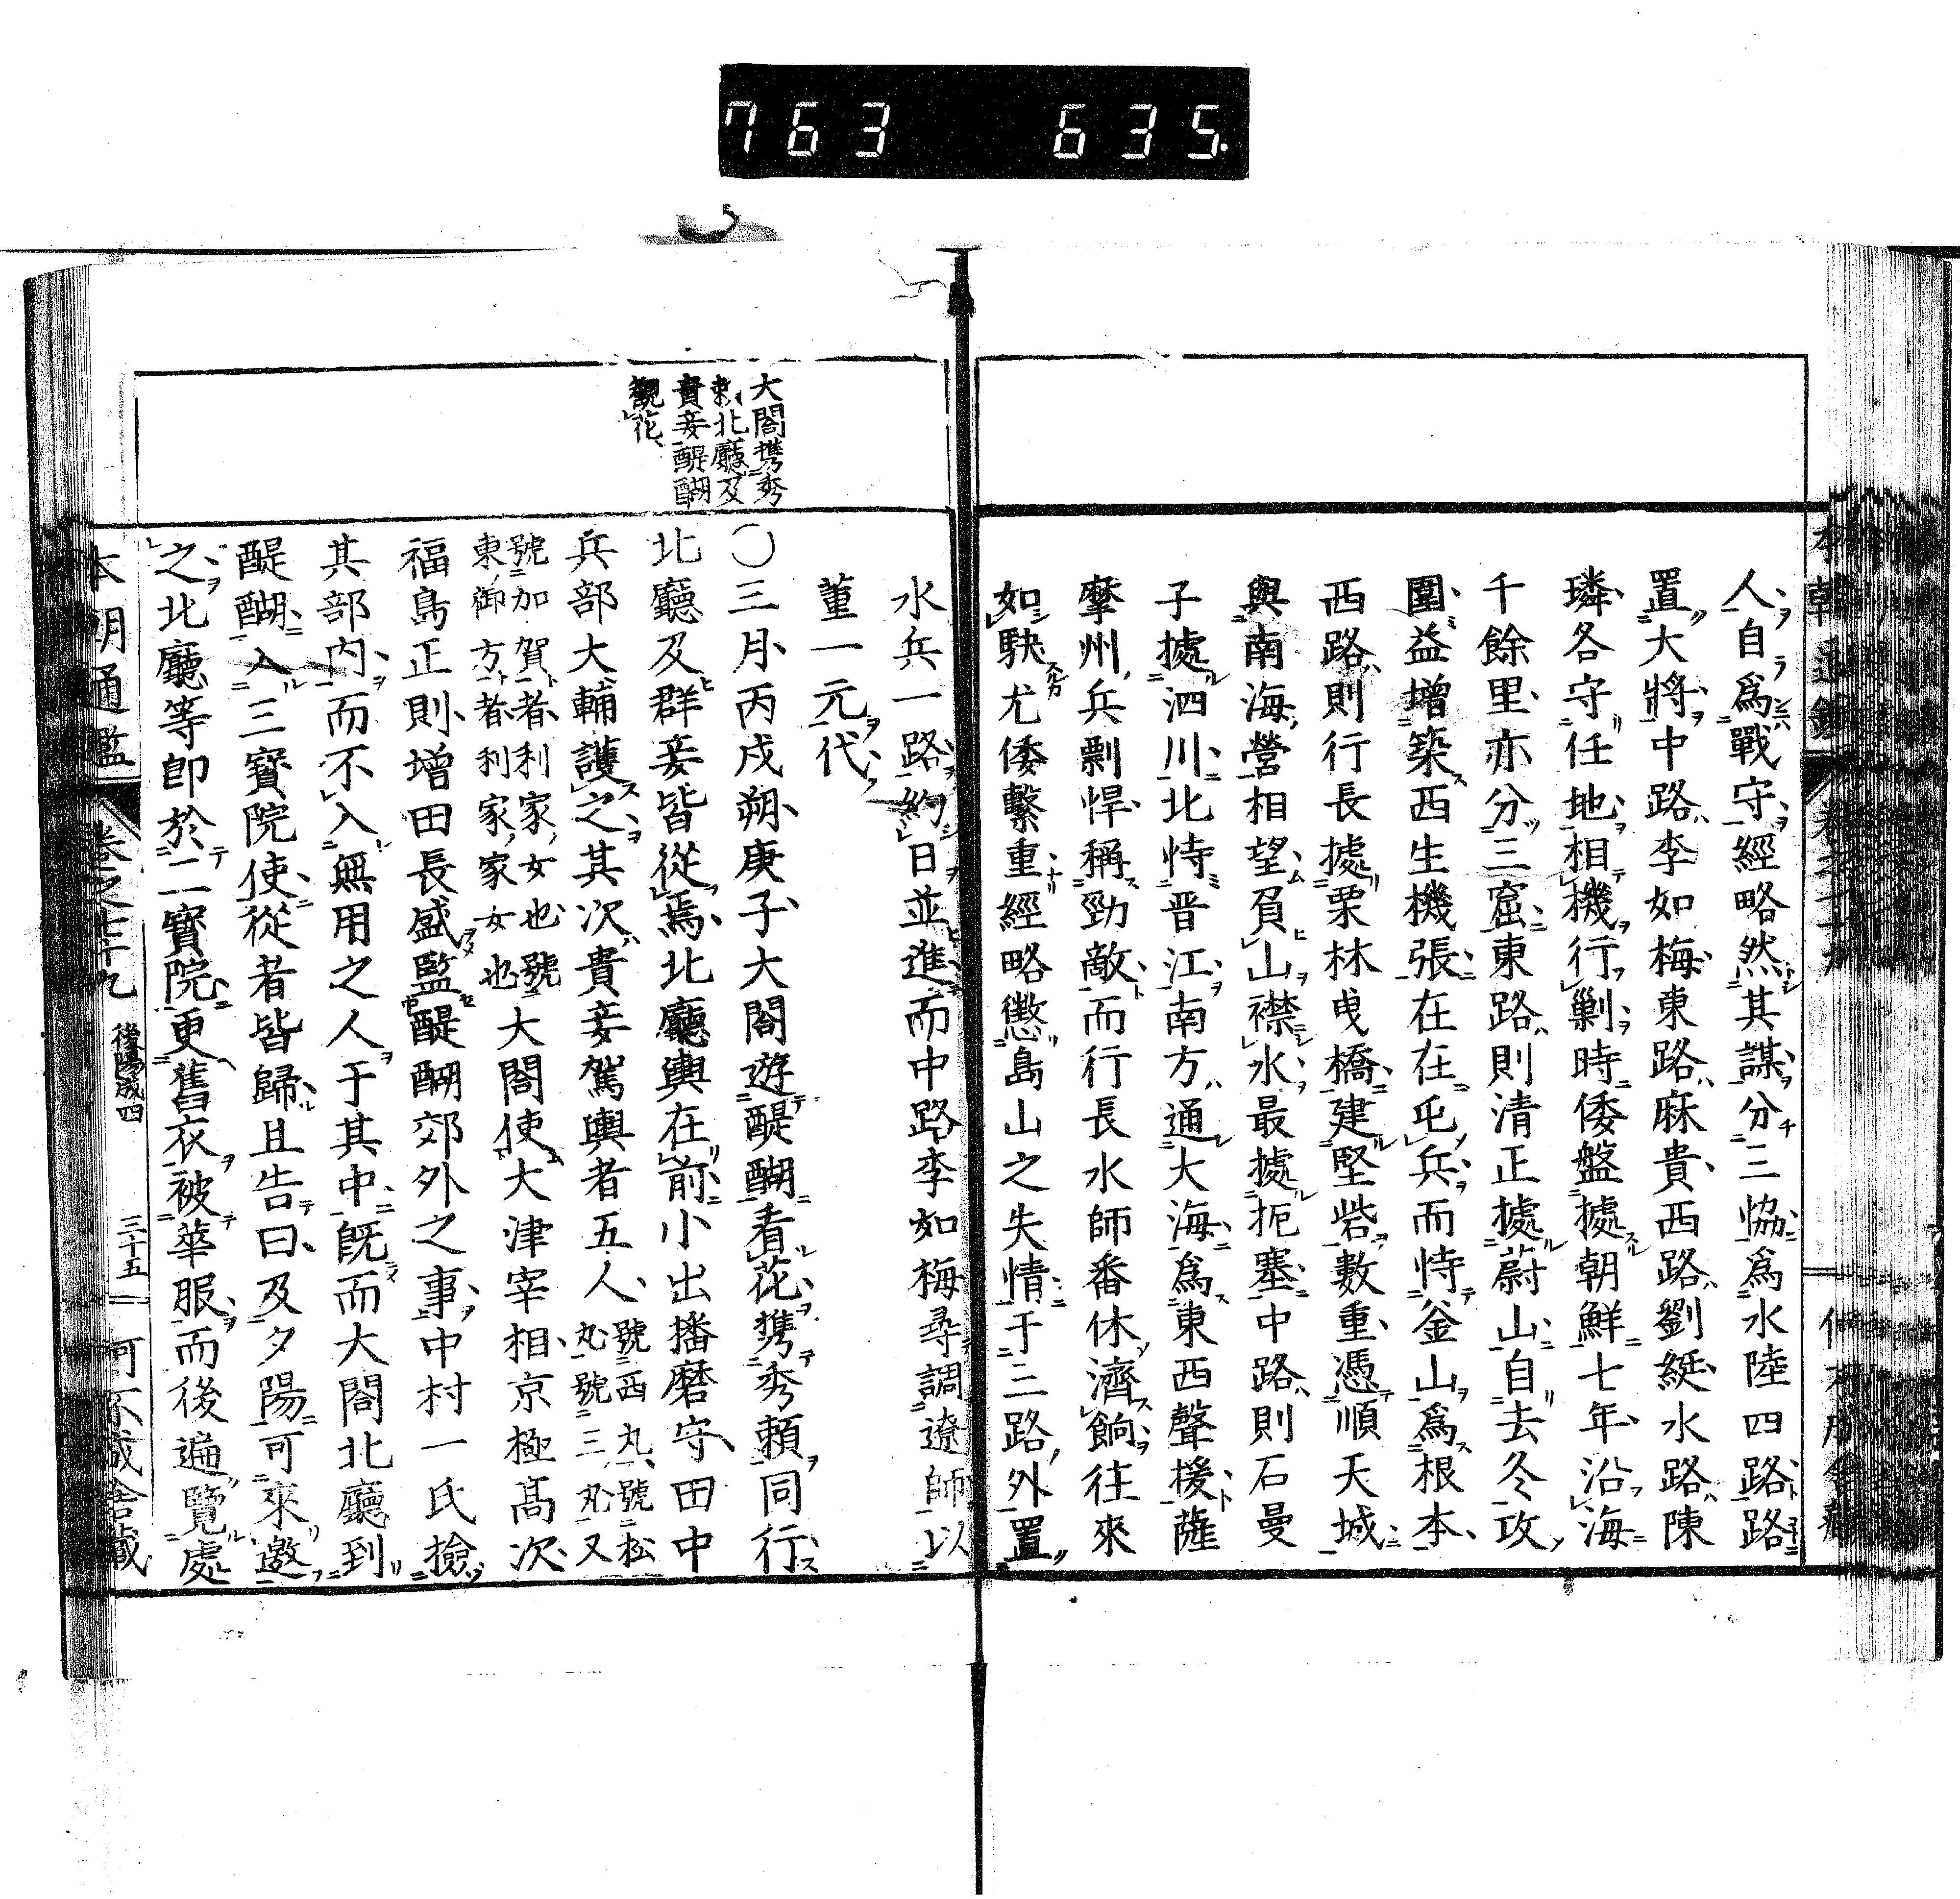 763 635.
人自爲戰守經略然其謀分三協爲水陸四路路
置大將中路李如梅東路麻貴西路劉綎水路陳
璘各守任地相機行剿時倭盤據朝鮮七年沿海
千餘里亦分三窟東路則清正據蔚山自去冬攻
圍益增築西生機張在在屯兵而恃釜山爲根本
西路則行長據栗林曵橋建堅砦數重憑順天城
與南海營相望負山襟水最據扼塞中路則石曼
子據泗川北恃晋江南方通大海爲東西聲援薩
摩州兵剽悍稱勁敵而行長水師番休濟餉往來
如駃尤倭繫重經略懲島山之失情于二路外置
水兵一路約日並進而中路李如梅尋調遼師以
董一元代
大閤携秀
頼北廳及
貴妾醍醐
觀花
〇三月丙戌朔庚子大閤遊醍醐看花携秀頼同行
北廳及群妾皆從焉北廳輿在前小出播磨守田中
兵部大輔護之其次貴妾駕輿者五人號西丸號松
丸號三丸又
號加賀者利家女也號
東御方者利家家女也大閤使大津宰相京極高次
福島正則增田長盛監醍醐郊外之事中村一氏撿
其部内而不入無用之人于其中既而大閤北廳到
醍醐入三寶院使從者皆歸且告曰及夕陽可來邀
之北廳等卽於二寶院更舊衣被華服而後遍覽處
本朝通鑑 卷之七十九 後陽成四 三十五